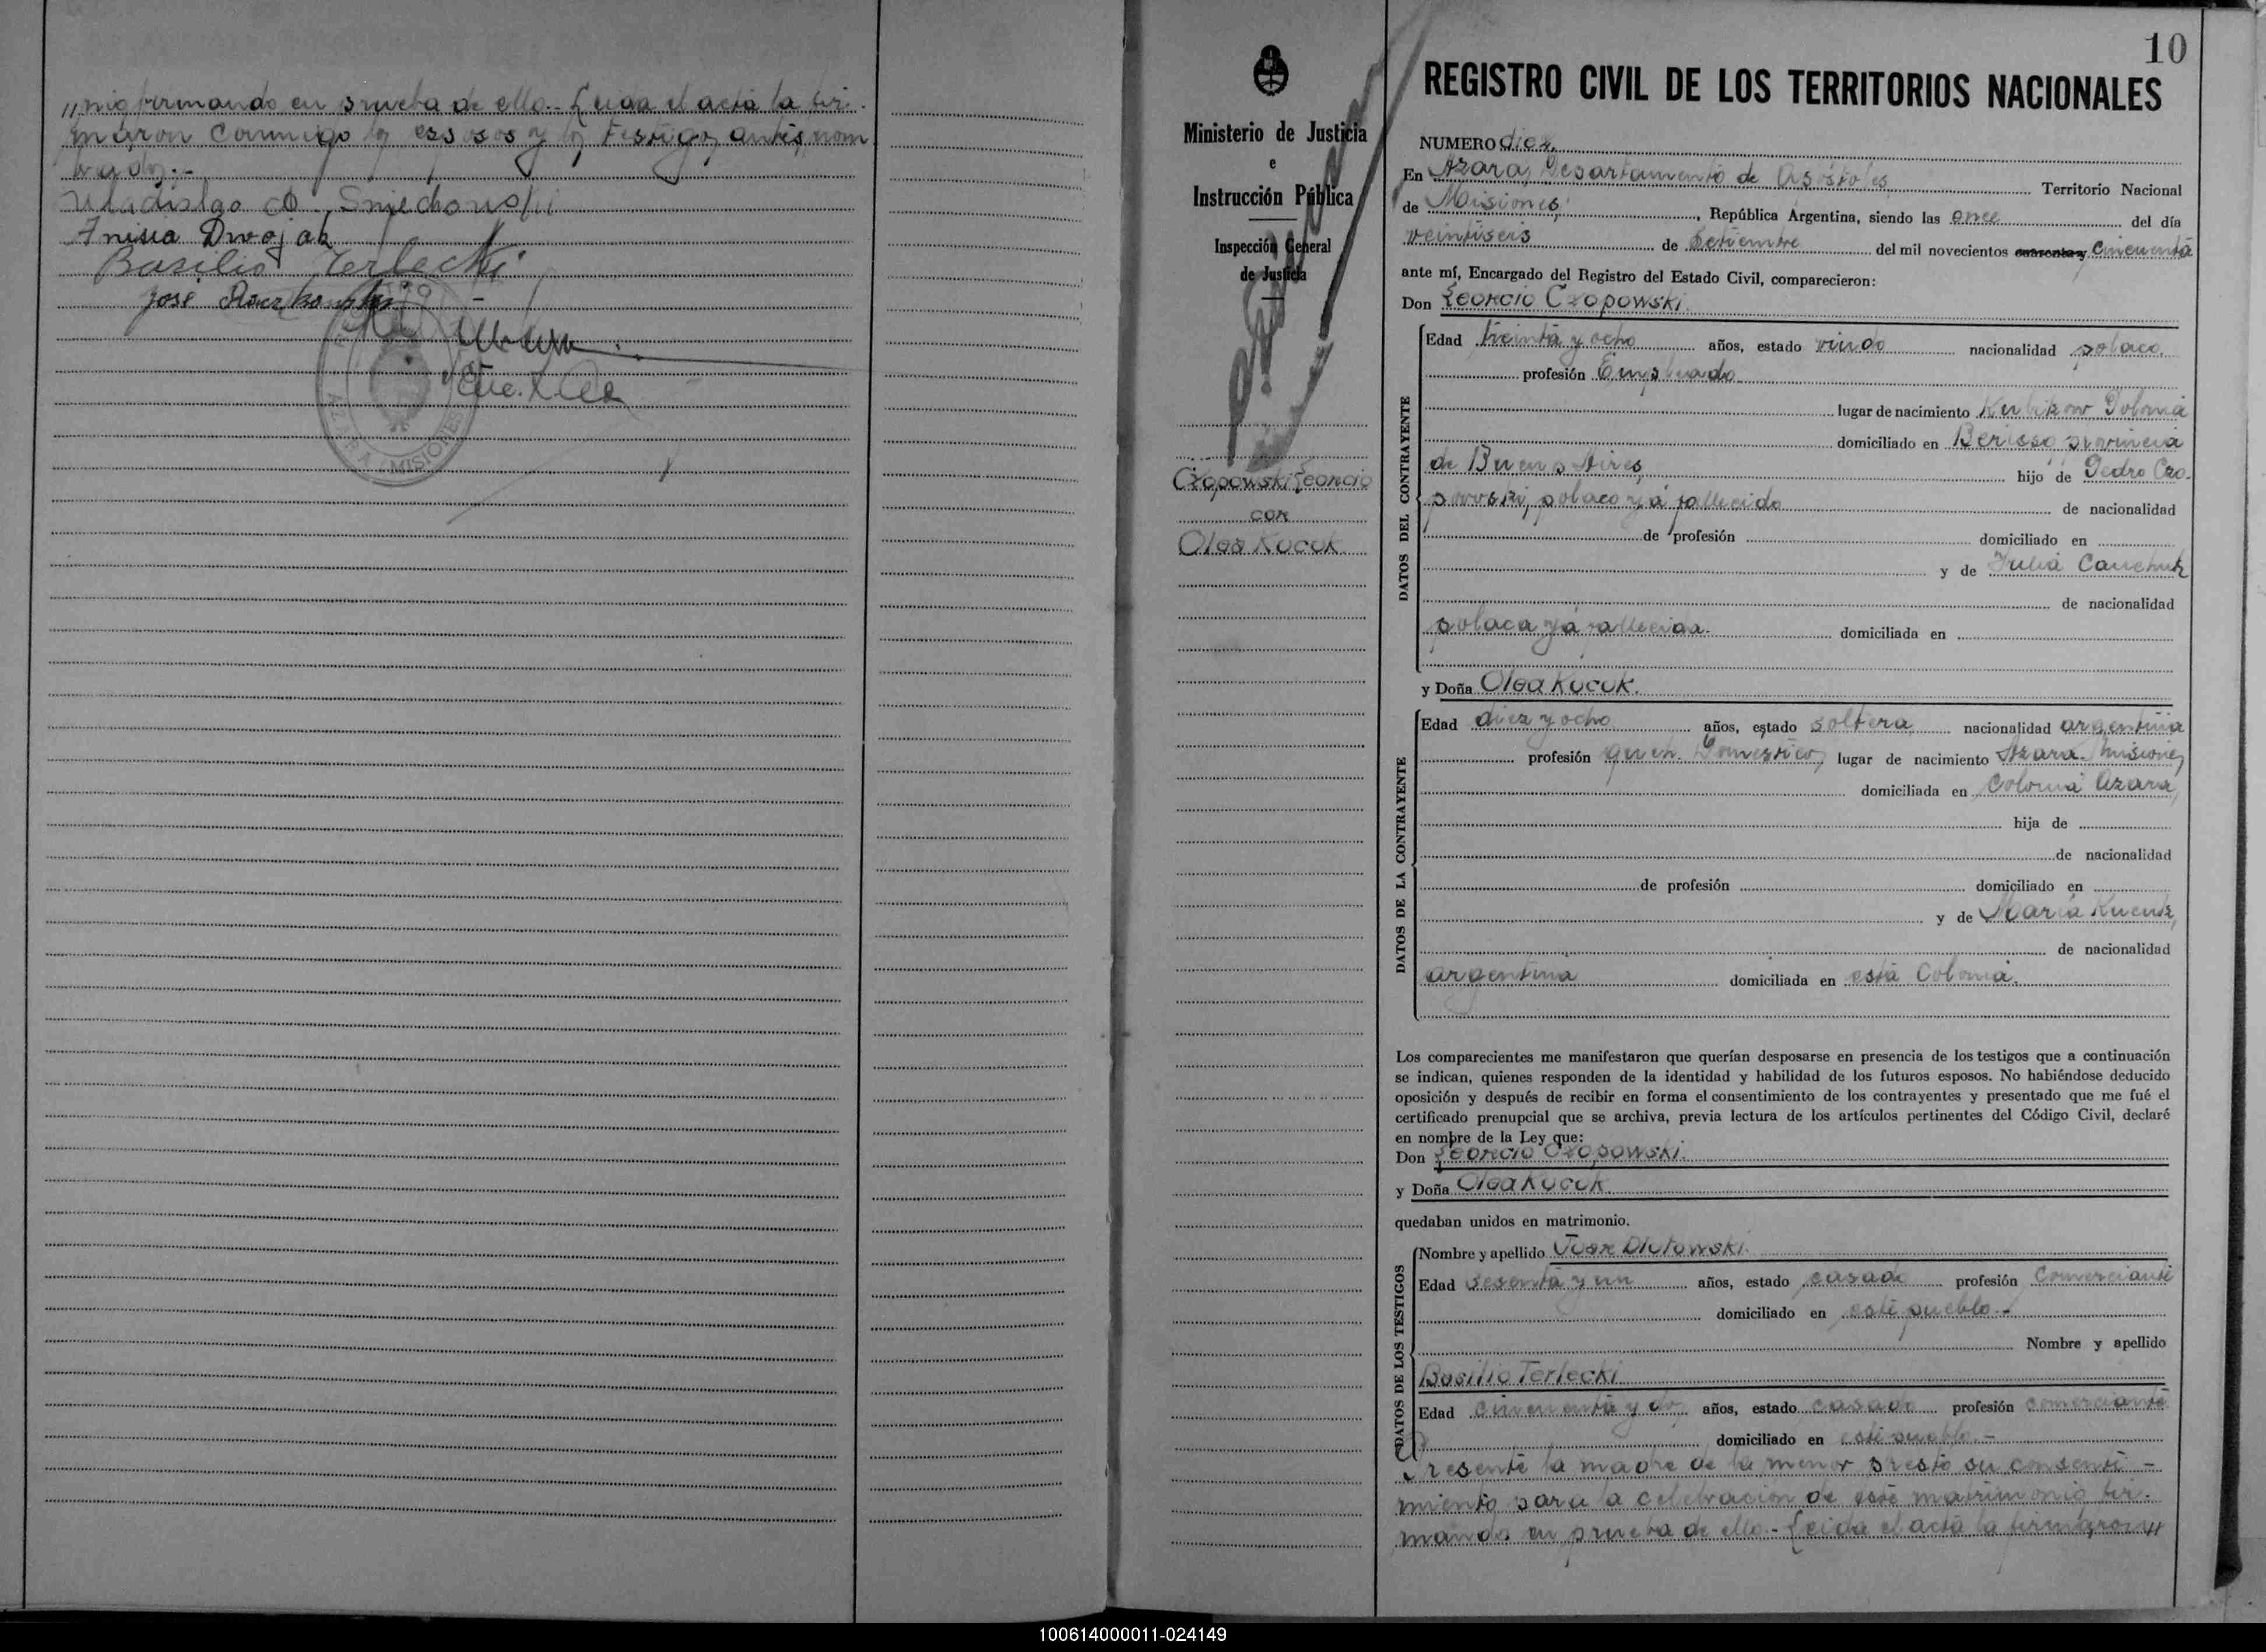 nio firmando en prueba de ello.- Leida el acta la fir-
maron conmigo los esposos y los testigos antes nom
brados.-
Anisia Dwojak
Basilio Terlecki
José
AZARA MISIONES
Ministerio de Justicia
e
Instrucción Pública
Inspección General
de Justicia
Czopowski Leoncio
con
Olga Kucuk
10
REGISTRO CIVIL DE LOS TERRITORIOS NACIONALES
NUMERO diez,
En Azara, Departamento de Apóstoles Territorio Nacional
de Misiones, República Argentina, siendo las once del día
veintiseis de Setiembre del mil novecientos cuarenta y cincuenta
ante mí, Encargado del Registro del Estado Civil, comparecieron:
Don Leoncio Czopowski.
DATOS DEL CONTRAYENTE
Edad treinta y ocho años, estado viudo nacionalidad polaco,
profesión Empleado
lugar de nacimiento Polonia
domiciliado en Berisso, provincia
de Buenos Aires, hijo de Pedro Czo-
powski, polaco ya fallecido de nacionalidad
de profesión domiciliado en
y de Julia
de nacionalidad
polaca ya fallecida. domiciliada en
y Doña Olga Kucuk.
DATOS DE LA CONTRAYENTE
Edad diez y ocho años, estado soltera, nacionalidad argentina
profesión queh. Domestico, lugar de nacimiento Azara. Misiones,
domiciliada en Colonia Azara,
hija de
de nacionalidad
de profesión domiciliado en
y de Maria Kucuk,
de nacionalidad
argentina domiciliada en esta Colonia.
Los comparecientes me manifestaron que querían desposarse en presencia de los testigos que a continuación
se indican, quienes responden de la identidad y habilidad de los futuros esposos. No habiéndose deducido
oposición y después de recibir en forma el consentimiento de los contrayentes y presentado que me fué el
certificado prenupcial que se archiva, previa lectura de los artículos pertinentes del Código Civil, declaré
en nombre de la Ley que:
Don Leoncio Czopowski.
y Doña Olga Kucuk.
quedaban unidos en matrimonio.
DATOS DE LOS TESTIGOS
Nombre y apellido Juan Dlutowski.
Edad sesenta y un años, estado casado profesión Comerciante
domiciliado en este pueblo.-
Nombre y apellido
Basilio Terlecki
Edad cincuenta y dos años, estado casado profesión comerciante
domiciliado en este pueblo.-
Presente la madre de la menor prestó su consenti-
miento para la celebracion de este matrimonio fir-
mando en prueba de ello.- Leida el acta la firmaron
100614000011-024149